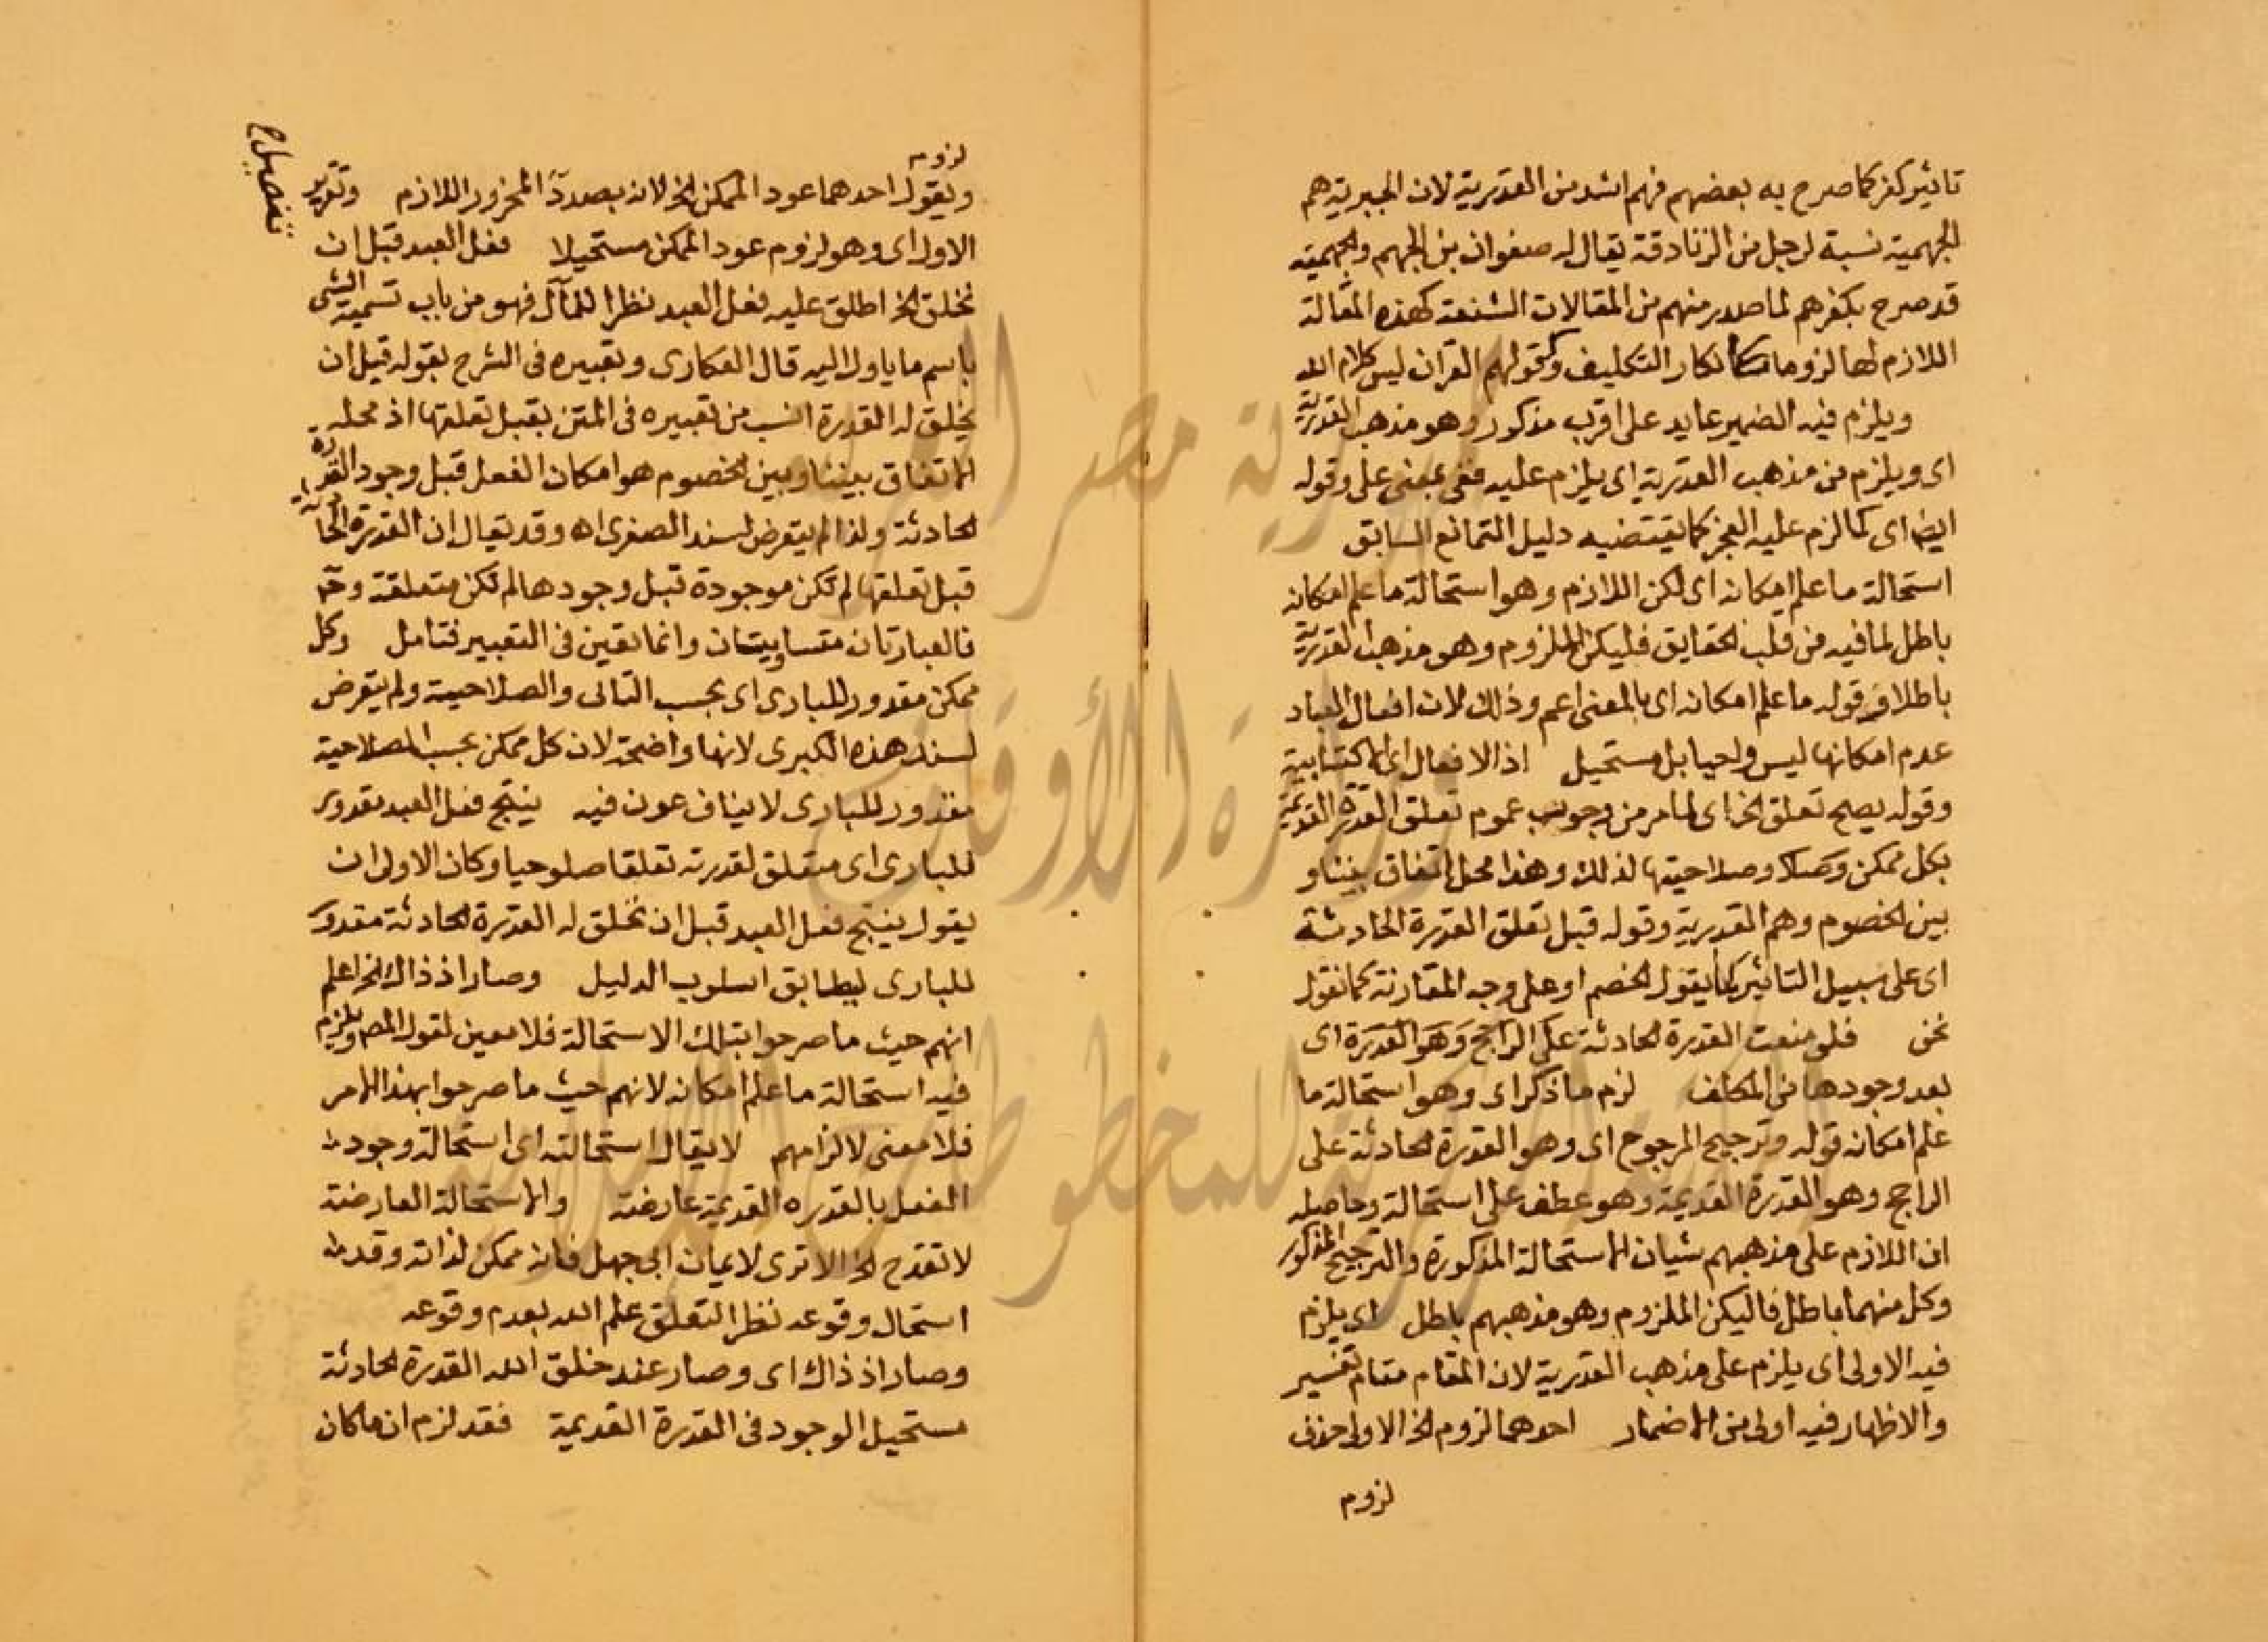 تاثير كفر كما صرح به بعضهم فهم اشد من القدرية لان الجبرية هم
الجهمية نسبة لرجل من الزنادقة يقال له صفوان بن الجهم والجهمية
قد صرح بكفرهم لما صدر منهم من المقالات الشنعة كهذه المقالة
اللازم لها لزوما انكار التكليف وكقولهم القران ليس كلام الله
ويلزم فيه الضمير عايد على اقرب مذكور وهو مذهب القدرية
اى ويلزم من مذهب القدرية اى يلزم عليه ففى بمعنى على وقوله
ايضا اى كما لزم عليه العجز كما يقتضيه دليل التمانع السابق
استحالة ما علم امكانه اى لكن اللازم وهو استحالة ما علم امكانه
باطل لما فيه من قلب الحقايق فليكن الملزوم وهو مذهب القدرية
باطلا وقوله ما علم امكانه اى بالمعنى اعم وذلك لان افعال العباد
عدم امكانها ليس واجبا بل مستحيل اذ الافعال اى الاكتسابية
وقوله يصح تعلق الخ اى لما مر من وجوب عموم تعلق القدرة القديمة
بكل ممكن وصلاحيتها لذلك وهذا محل اتفاق بيننا و
بين الخصوم وهم القدرية وقوله قبل تعلق القدرة الحادثة
اى على سبيل التاثير كما يقول الخصم او على وجه المقارنة كما نقول
نحن فلو منعت القدرة الحادثة على الراجح وهو القدرة اى
بعد وجودها فى المكلف لزم ما ذكر اى وهو استحالة ما
علم امكانه قوله وترجيح المرجوح اى وهو القدرة الحادثة على
الراجح وهو القدرة القديمة وهو عطف على استحالة وحاصله
ان اللازم على مذهبهم شيان الاستحالة المذكورة والترجيح المذكور
وكل منهما باطل فاليكن الملزوم وهو مذهبهم باطل اى يلزم
فيه الاولى اى يلزم على مذهب القدرية لان المقام مقام تفسير
والاظهار فيه اولى من الاضمار احدهما لزوم الخ الاولى حذف
لزوم
لزوم
ويقول احدهما عود الممكن الخ لانه بصدد المحزور اللازم وتقرير
الاول اى وهو لزوم عود الممكن مستحيلا فعل العبد قبل ان
تخلق الخ اطلق عليه فعل العبد نظرا للمآل فهو من باب تسمية الشى
باسم ما ياول اليه قال العكارى وتعبيره فى الشرح بقوله قبل ان
يخلق له القدرة انسب من تعبيره فى المتن بقبل تعلقها اذ محله
الاتفاق بيننا وبين الخصوم هو امكان الفعل قبل وجود القدرة
الحادثة ولذا لم يتعرض لسند الصغرى اه وقد يقال ان القدرة الحادثة
قبل تعلقها لم تكن موجودة قبل وجودها لم تكن متعلقة وح
فالعبارتان متساويتان وانما تفنن فى التعبير فتامل وكل
ممكن مقدور للبارى اى بحسب التالى والصلاحية ولم يتعرض
لسند هذه الكبرى لانها واضحة لان كل ممكن بحسب الصلاحية
مقدور للبارى لا ينازعون فيه ينتج فعل العبد مقدور
للبارى اى متعلق لقدرته تعلقا صلوحيا وكان الاولى ان
يقول ينتج فعل العبد قبل ان تخلق له القدرة الحادثة مقدور
للبارى ليطابق اسلوب الدليل وصار اذ ذاك الخ اعلم
انهم حيث ما صرحوا بتلك الاستحالة فلا معين لقول المصم ويلزم
فيه استحالة ما علم امكانه لانهم حيث ما صرحوا بهذا الامر
فلا معنى لالزامهم لا يقال استحالته اى استحالة وجود
الفعل بالقدره القديمة عارضة والاستحالة العارضة
لا تقدح الخ الا ترى لايمان ابى جهل فانه ممكن لذاته وقد
استحال وقوعه نظرا لتعلق علم الله بعدم وقوعه
وصار اذ ذاك اى وصار عند خلق الله القدرة الحادثة
مستحيل الوجود فى القدرة القديمة فقد لزم ان ما كان